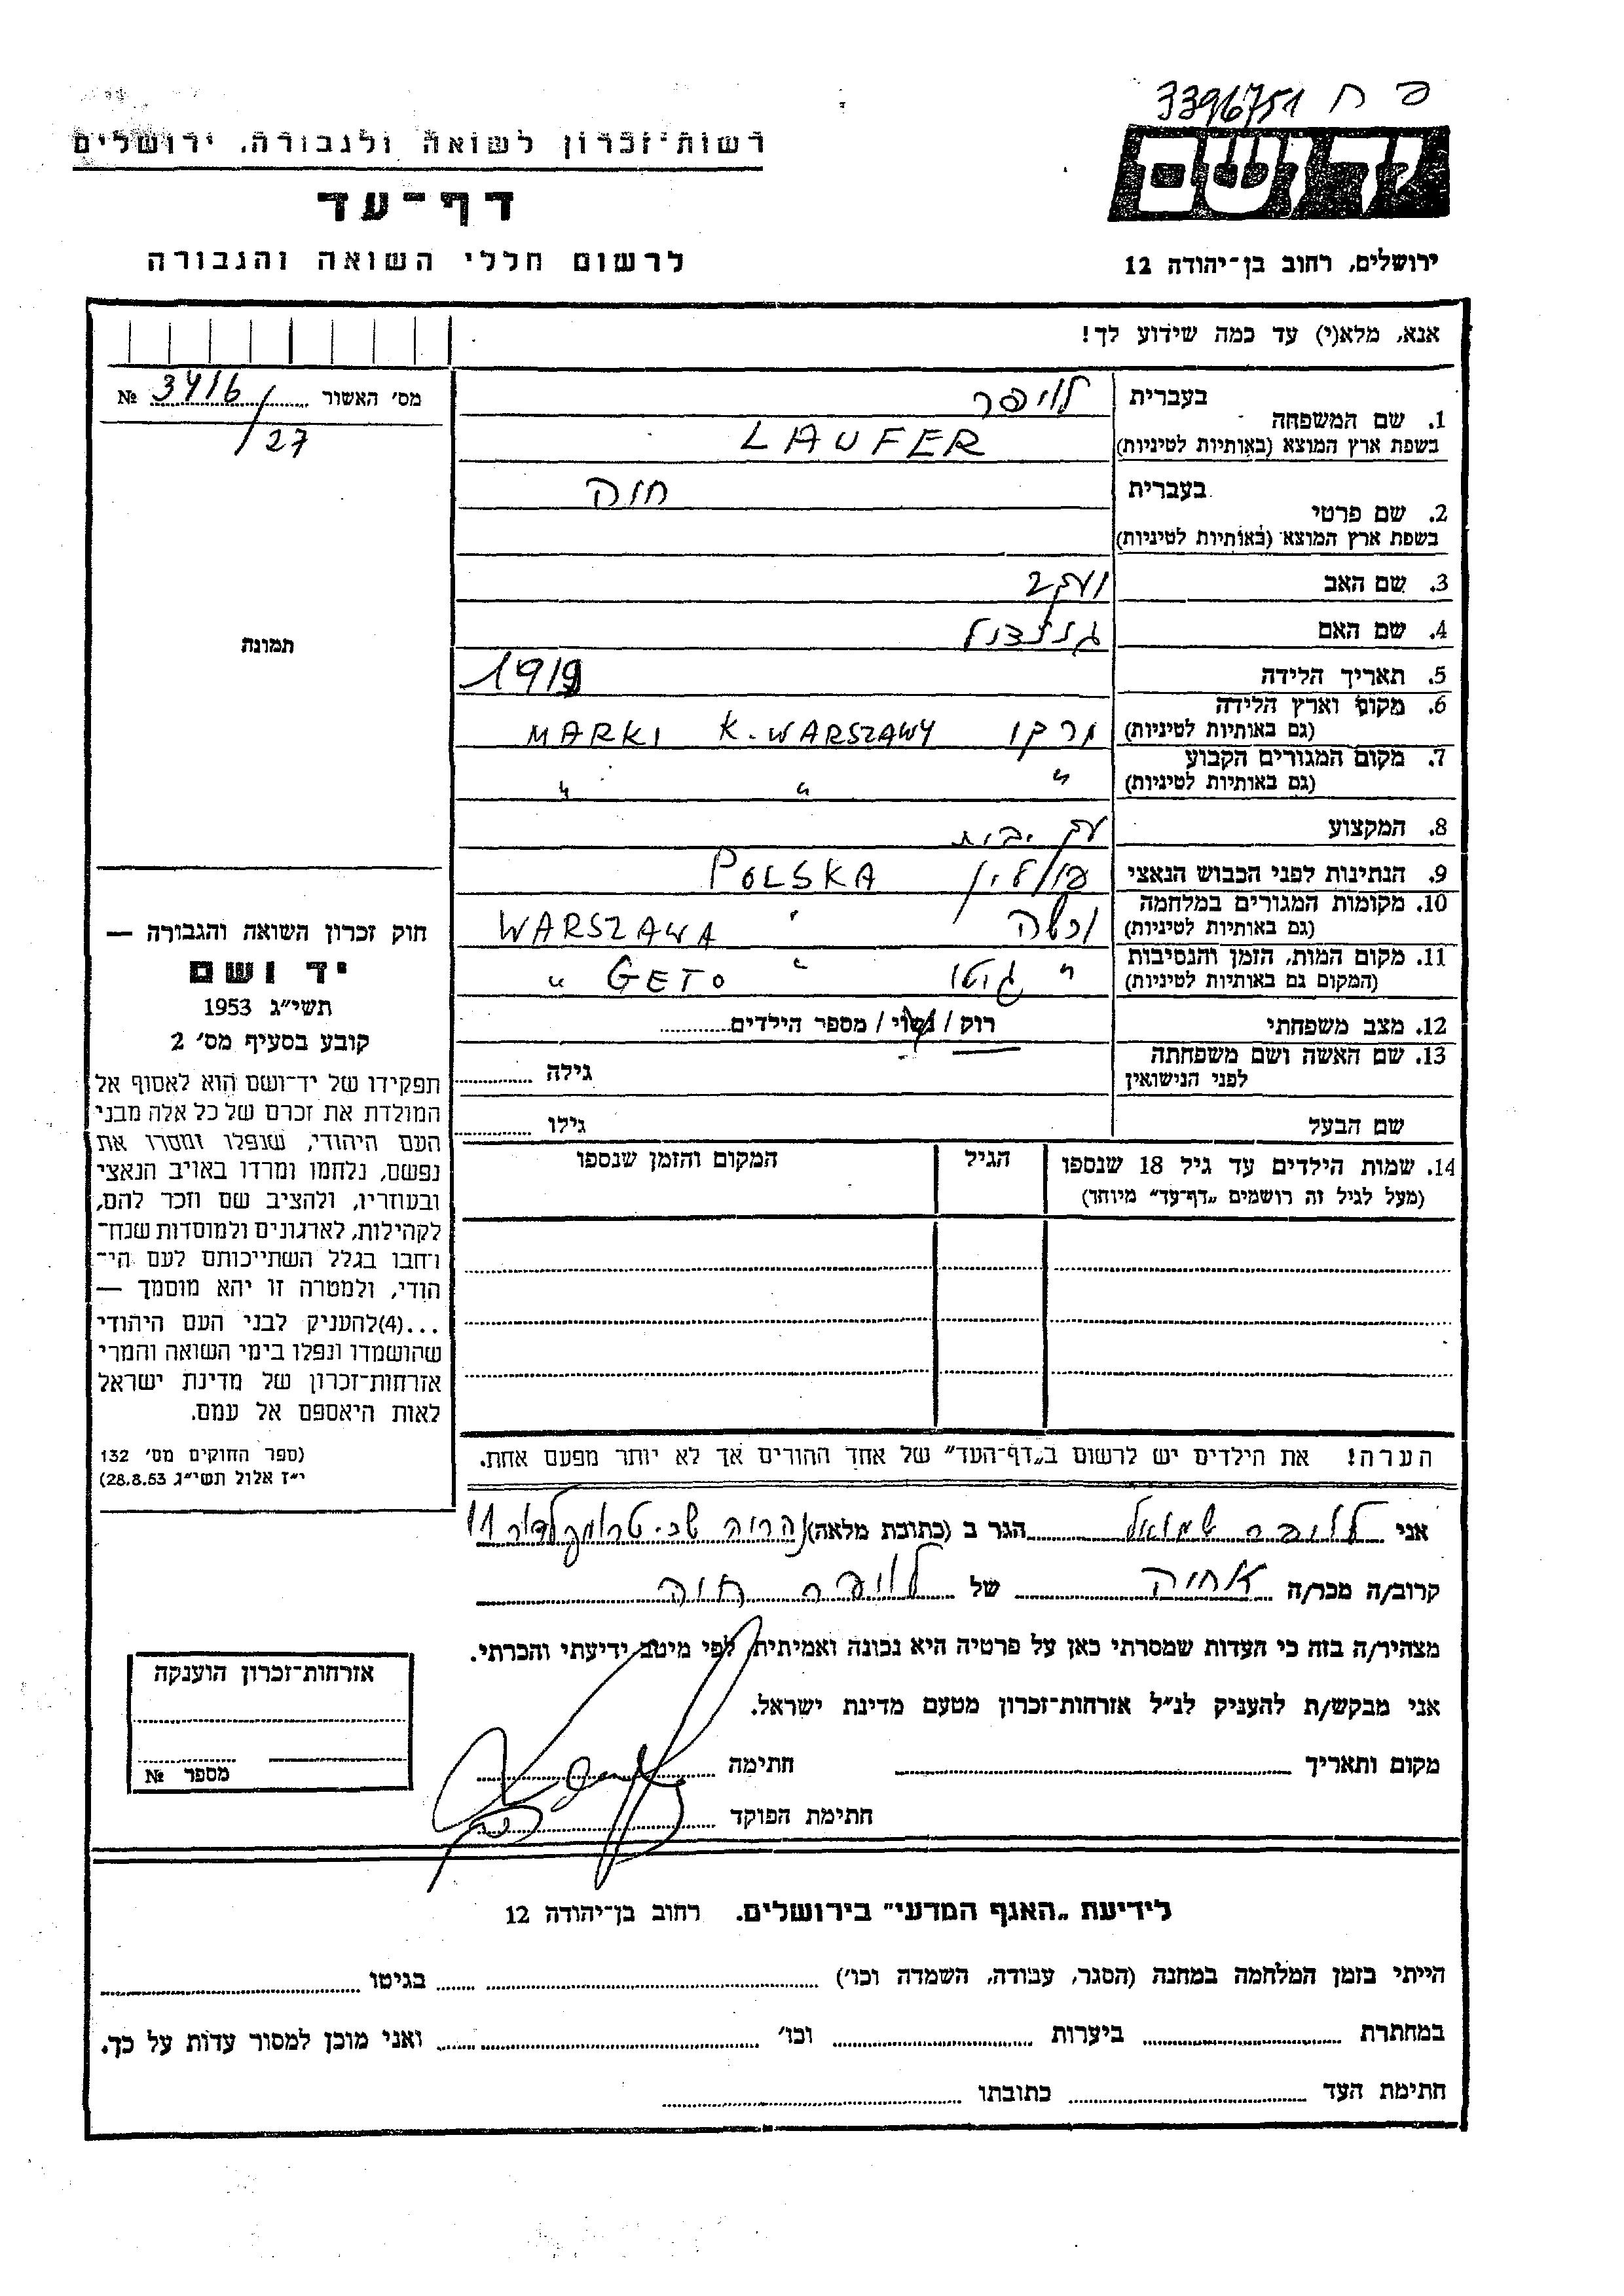 פ ח 3396751
רשות־זכרון לשואה ולגבורה, ירושלים
דף־עד
לרשום חללי השואה והגבורה
יד ושם
ירושלים, רחוב בן־יהודה 12
אנא, מלא(י) עד כמה שידוע לך!
מס׳ האשור 3416 №
/27
תמונה
1. שם המשפחה בעברית לויפר
בשפת ארץ המוצא (באותיות לטיניות) LAUFER
2. שם פרטי בעברית חוה
בשפת ארץ המוצא (באותיות לטיניות)
3. שם האב יעקב
4. שם האם
5. תאריך הלידה 1919
6. מקום וארץ הלידה
(גם באותיות לטיניות) מרקי MARKI K. WARSZAWY
7. מקום המגורים הקבוע
(גם באותיות לטיניות) " " "
8. המקצוע
9. הנתינות לפני הכבוש הנאצי פולין POLSKA
10. מקומות המגורים במלחמה
(גם באותיות לטיניות) ורשה " WARSZAWA
11. מקום המות, הזמן והנסיבות
(המקום גם באותיות לטיניות) " גיטו " GETO "
12. מצב משפחתי רוק / נשוי / מספר הילדים
13. שם האשה ושם משפחתה
לפני הנישואין גילה
שם הבעל גילו
14. שמות הילדים עד גיל 18 שנספו הגיל המקום והזמן שנספו
(מעל לגיל זה רושמים „דף־עד” מיוחד)
הערה! את הילדים יש לרשום ב„דף־העד” של אחד ההורים אך לא יותר מפעם אחת.
חוק זכרון השואה והגבורה —
יד ושם
תשי״ג 1953
קובע בסעיף מס׳ 2
תפקידו של יד־ושם הוא לאסוף אל
המולדת את זכרם של כל אלה מבני
העם היהודי, שנפלו ומסרו את
נפשם, נלחמו ומרדו באויב הנאצי
ובעוזריו, ולהציב שם וזכר להם,
לקהילות, לארגונים ולמוסדות שנח־
רבו בגלל השתייכותם לעם הי־
הודי, ולמטרה זו יהא מוסמך —
...(4)להעניק לבני העם היהודי
שהושמדו ונפלו בימי השואה והמרי
אזרחות־זכרון של מדינת ישראל
לאות היאספם אל עמם.
(ספר החוקים מס׳ 132
י״ז אלול תשי״ג 28.8.53)
אני לויפר שמואל הגר ב (כתובת מלאה) נהריה שכ. טרומפלדור 11
קרוב/ה מכר/ה אחיה של לויפר חוה
מצהיר/ה בזה כי העדות שמסרתי כאן על פרטיה היא נכונה ואמיתית, לפי מיטב ידיעתי והכרתי.
אני מבקש/ת להעניק לנ״ל אזרחות־זכרון מטעם מדינת ישראל.
מקום ותאריך חתימה
חתימת הפוקד
אזרחות־זכרון הוענקה
מספר №
לידיעת „האגף המדעי” בירושלים. רחוב בן־יהודה 12
הייתי בזמן המלחמה במחנה (הסגר, עבודה, השמדה וכו׳) בגיטו
במחתרת ביערות וכו׳ ואני מוכן למסור עדות על כך.
חתימת העד כתובתו